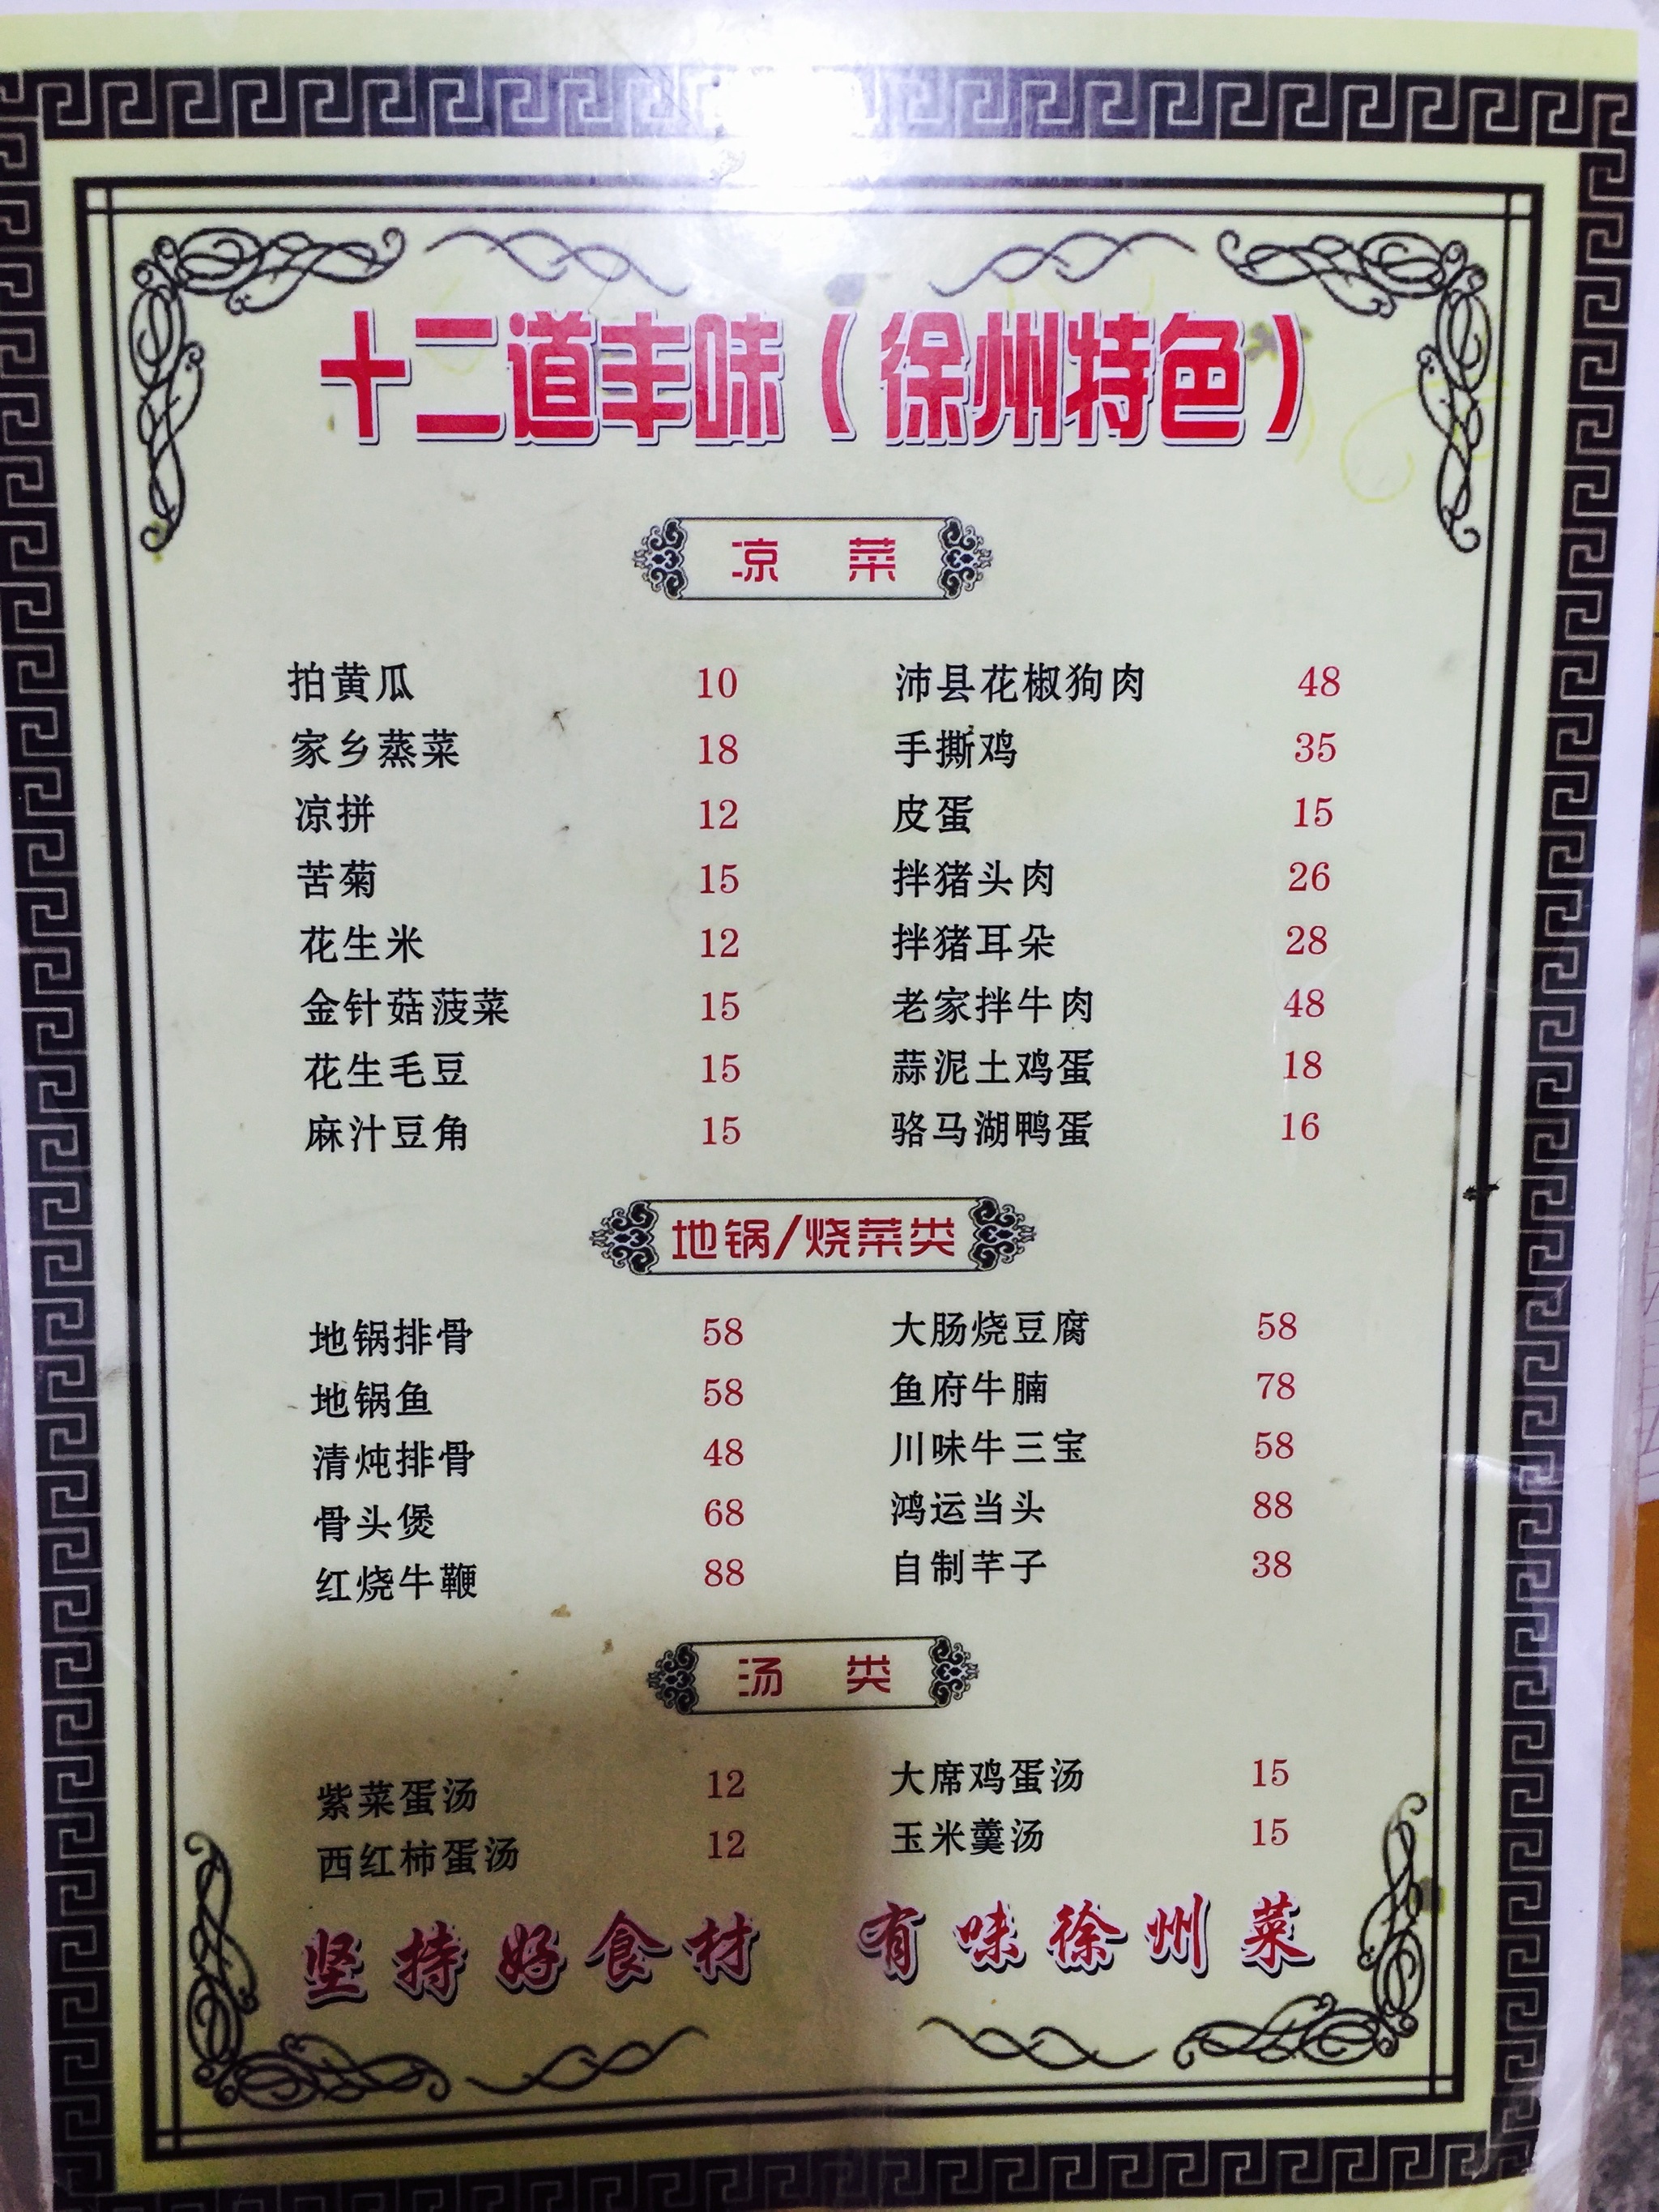 十二道丰味（徐州特色）
凉 菜
拍黄瓜 10 沛县花椒狗肉 48
家乡蒸菜 18 手撕鸡 35
凉拼 12 皮蛋 15
苦菊 15 拌猪头肉 26
花生米 12 拌猪耳朵 28
金针菇菠菜 15 老家拌牛肉 48
花生毛豆 15 蒜泥土鸡蛋 18
麻汁豆角 15 骆马湖鸭蛋 16
地锅/烧菜类
地锅排骨 58 大肠烧豆腐 58
地锅鱼 58 鱼府牛腩 78
清炖排骨 48 川味牛三宝 58
骨头煲 68 鸿运当头 88
红烧牛鞭 88 自制芊子 38
汤 类
紫菜蛋汤 12 大席鸡蛋汤 15
西红柿蛋汤 12 玉米羹汤 15
坚持好食材 有味徐州菜